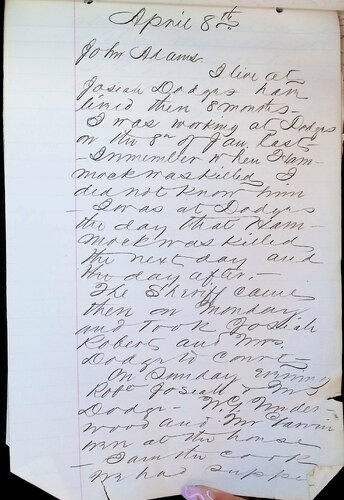 April 8th
John Adams.
I live at
Josiah Dodges have
lived then 8 months -
I was working at Dodges
on the 8th of Jan. last -
- I remember when Ham-
mock was killed, I
did not know him
- I was at Dodges
the day that Ham-
mock was killed,
the next day and
the day after. -
The Sheriff came
then on Monday
and took Josiah
Robert and Mrs.
Dodge to court -
On Sunday evening
Robt Josiah & Mrs
Dodge - W.G. Under-
wood and Mr
were at the house
- I am the cook
we had suppe